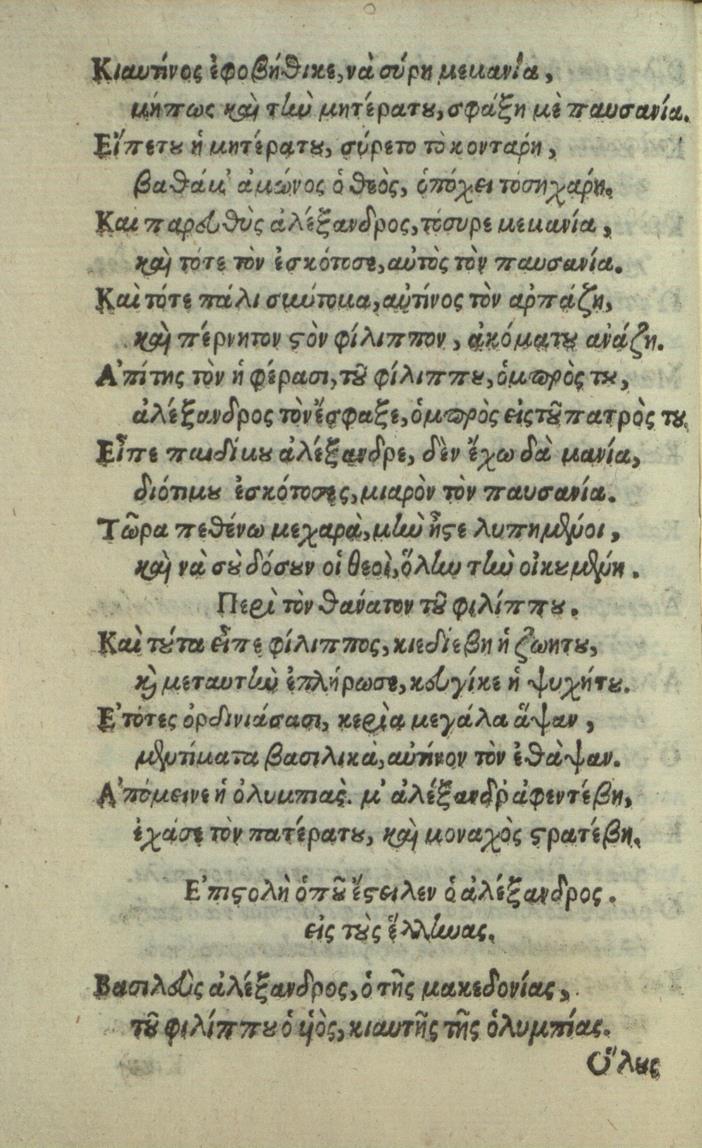 Κιαυτήνος ἐφοβήθικε, νὰ σύρη μεμανία,
μήπως καὶ τὴν μητέρατου, σφάξη μὲ παυσανία.
Εἴπετου ἡ μητέρατου, σύρετο τὸ κονταρη,
βαθάμ' ἀμώνος ὁ θεὸς, ὁπόχει τοσηχαρη.
Και παρευθὺς ἀλέξανδρος, τόσυρε μεμανία,
καὶ τότε τὸν ἐσκότοσε, αὐτὸς τὸν παυσανία.
Καὶ τότε πάλι σμύτομα, αὐτήνος τὸν ἀρπάζη,
καὶ πέρνητον στὸν φίλιππον, ἀκόματου ανάζη.
Ἀπίτης τὸν ἡ φέρασι, τοῦ φίλιππου, ὁμπρὸς του,
ἀλέξανδρος τὸν ἔσφαξε, ὁμπρὸς εἰς τοῦ πατρὸς του.
Εἶπε παιδίμου ἀλέξανδρε, δὲν ἔχω δὰ μανία,
διότιμου ἐσκότοσες, μιαρὸν τὸν παυσανία.
Τῶρα πεθένω μεχαρὰ, μὴν ἦστε λυπημένοι,
καὶ νὰ σοὺ δόσουν οἱ θεοὶ, ὅλην τὴν οἰκουμένη.
Περὶ τὸν θανατον τοῦ φιλίππου.
Καὶ τούτα εἶπε φίλιππος, κιεδίεβη ἡ ζωητου,
καὶ μεταυτὴν ἐπλήρωσε, κευγίκε ἡ ψυχήτου.
Ἐτότες ὀρδινιάσασι, κερία μεγάλα ἅψαν,
μεντύματα βασιλικὰ, αὐτήνον τὸν ἐθάψαν.
Ἀπόμεινε ἡ ὀλυμπιὰς. μ' ἀλέξανδρ' ἀφεντέβη,
ἐχάσε τὸν πατέρατου, καὶ μοναχὸς στρατέβη.
Ἐπιστολὴ ὁποῦ ἔστειλεν ὁ ἀλέξανδρος.
εἰς τοὺς ἕλληνας.
Βασιλεὺς ἀλέξανδρος, ὁ τῆς μακεδονίας,
τοῦ φιλίππου ὁ ὑὸς, κιαυτῆς τῆς ὀλυμπίας.
Ὅλους